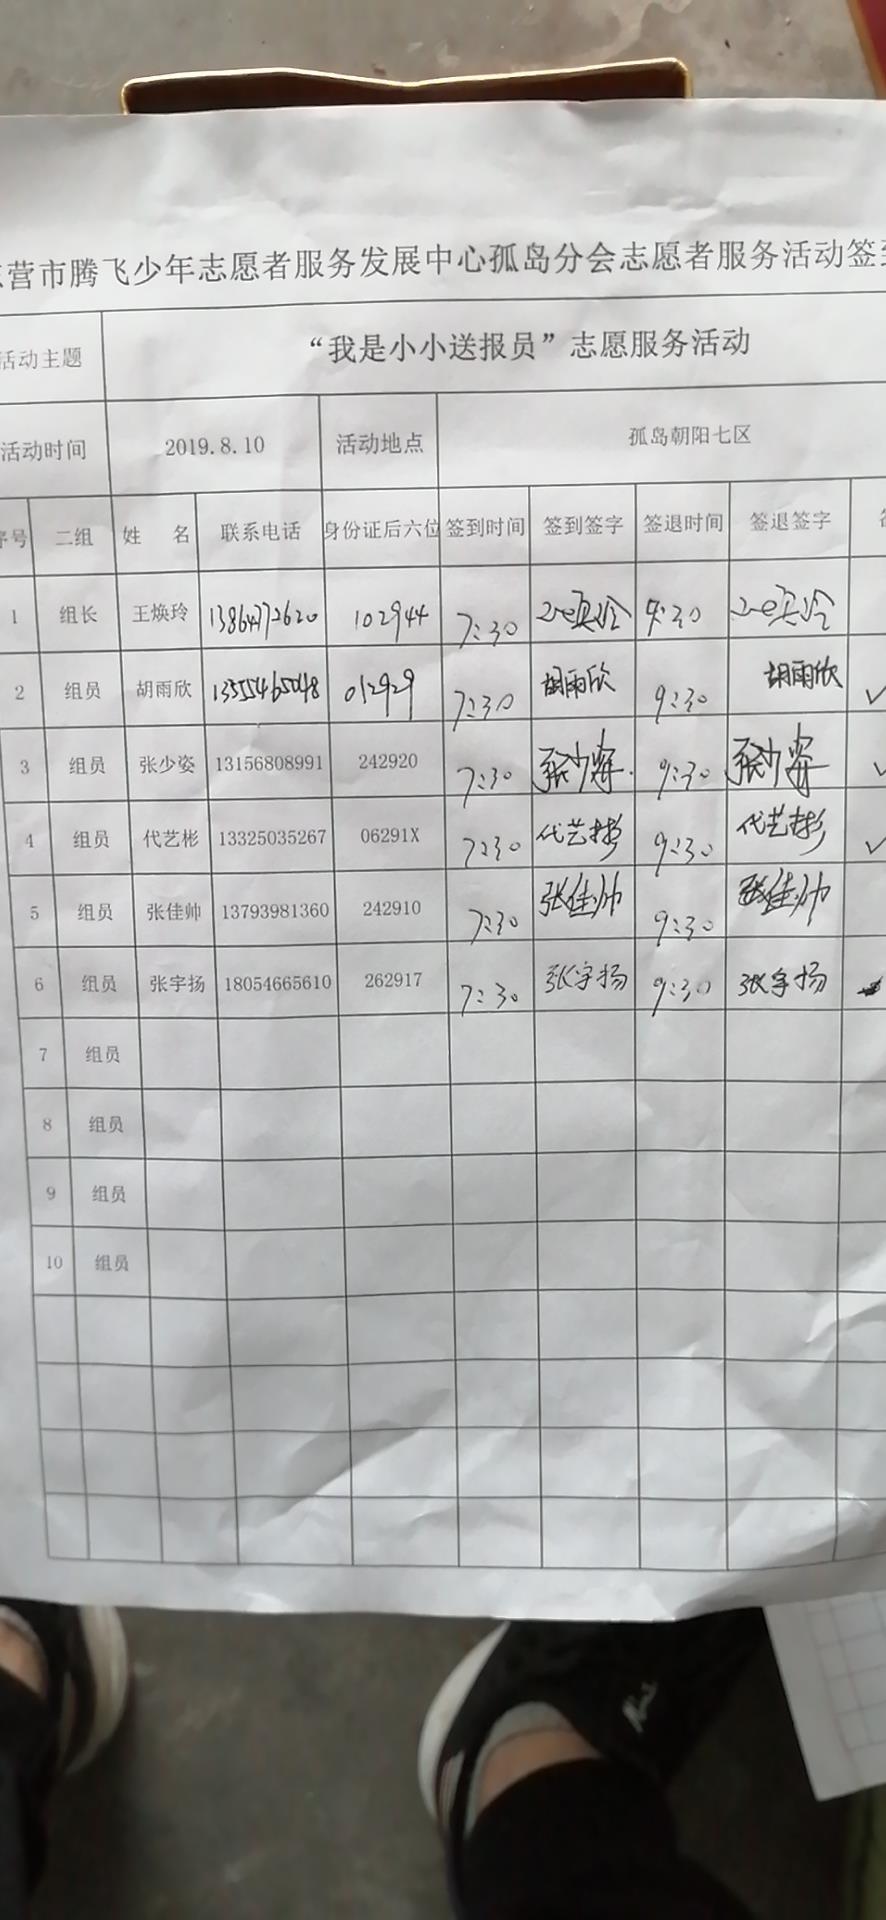 营市腾飞少年志愿者服务发展中心孤岛分会志愿者服务活动签到
活动主题 “我是小小送报员”志愿服务活动
活动时间 2019.8.10 活动地点 孤岛朝阳七区
序号 二组 姓 名 联系电话 身份证后六位 签到时间 签到签字 签退时间 签退签字
1 组长 王焕玲 13864772620 102944 7:30 9:30
2 组员 胡雨欣 13555465048 012929 7:30 胡雨欣 9:30 胡雨欣 ✓
3 组员 张少姿 13156808991 242920 7:30 张少姿 9:30 张少姿 ✓
4 组员 代艺彬 13325035267 06291X 7:30 代艺彬 9:30 代艺彬 ✓
5 组员 张佳帅 13793981360 242910 7:30 张佳帅 9:30 张佳帅
6 组员 张宇扬 18054665610 262917 7:30 张宇扬 9:30 张宇扬
7 组员
8 组员
9 组员
10 组员